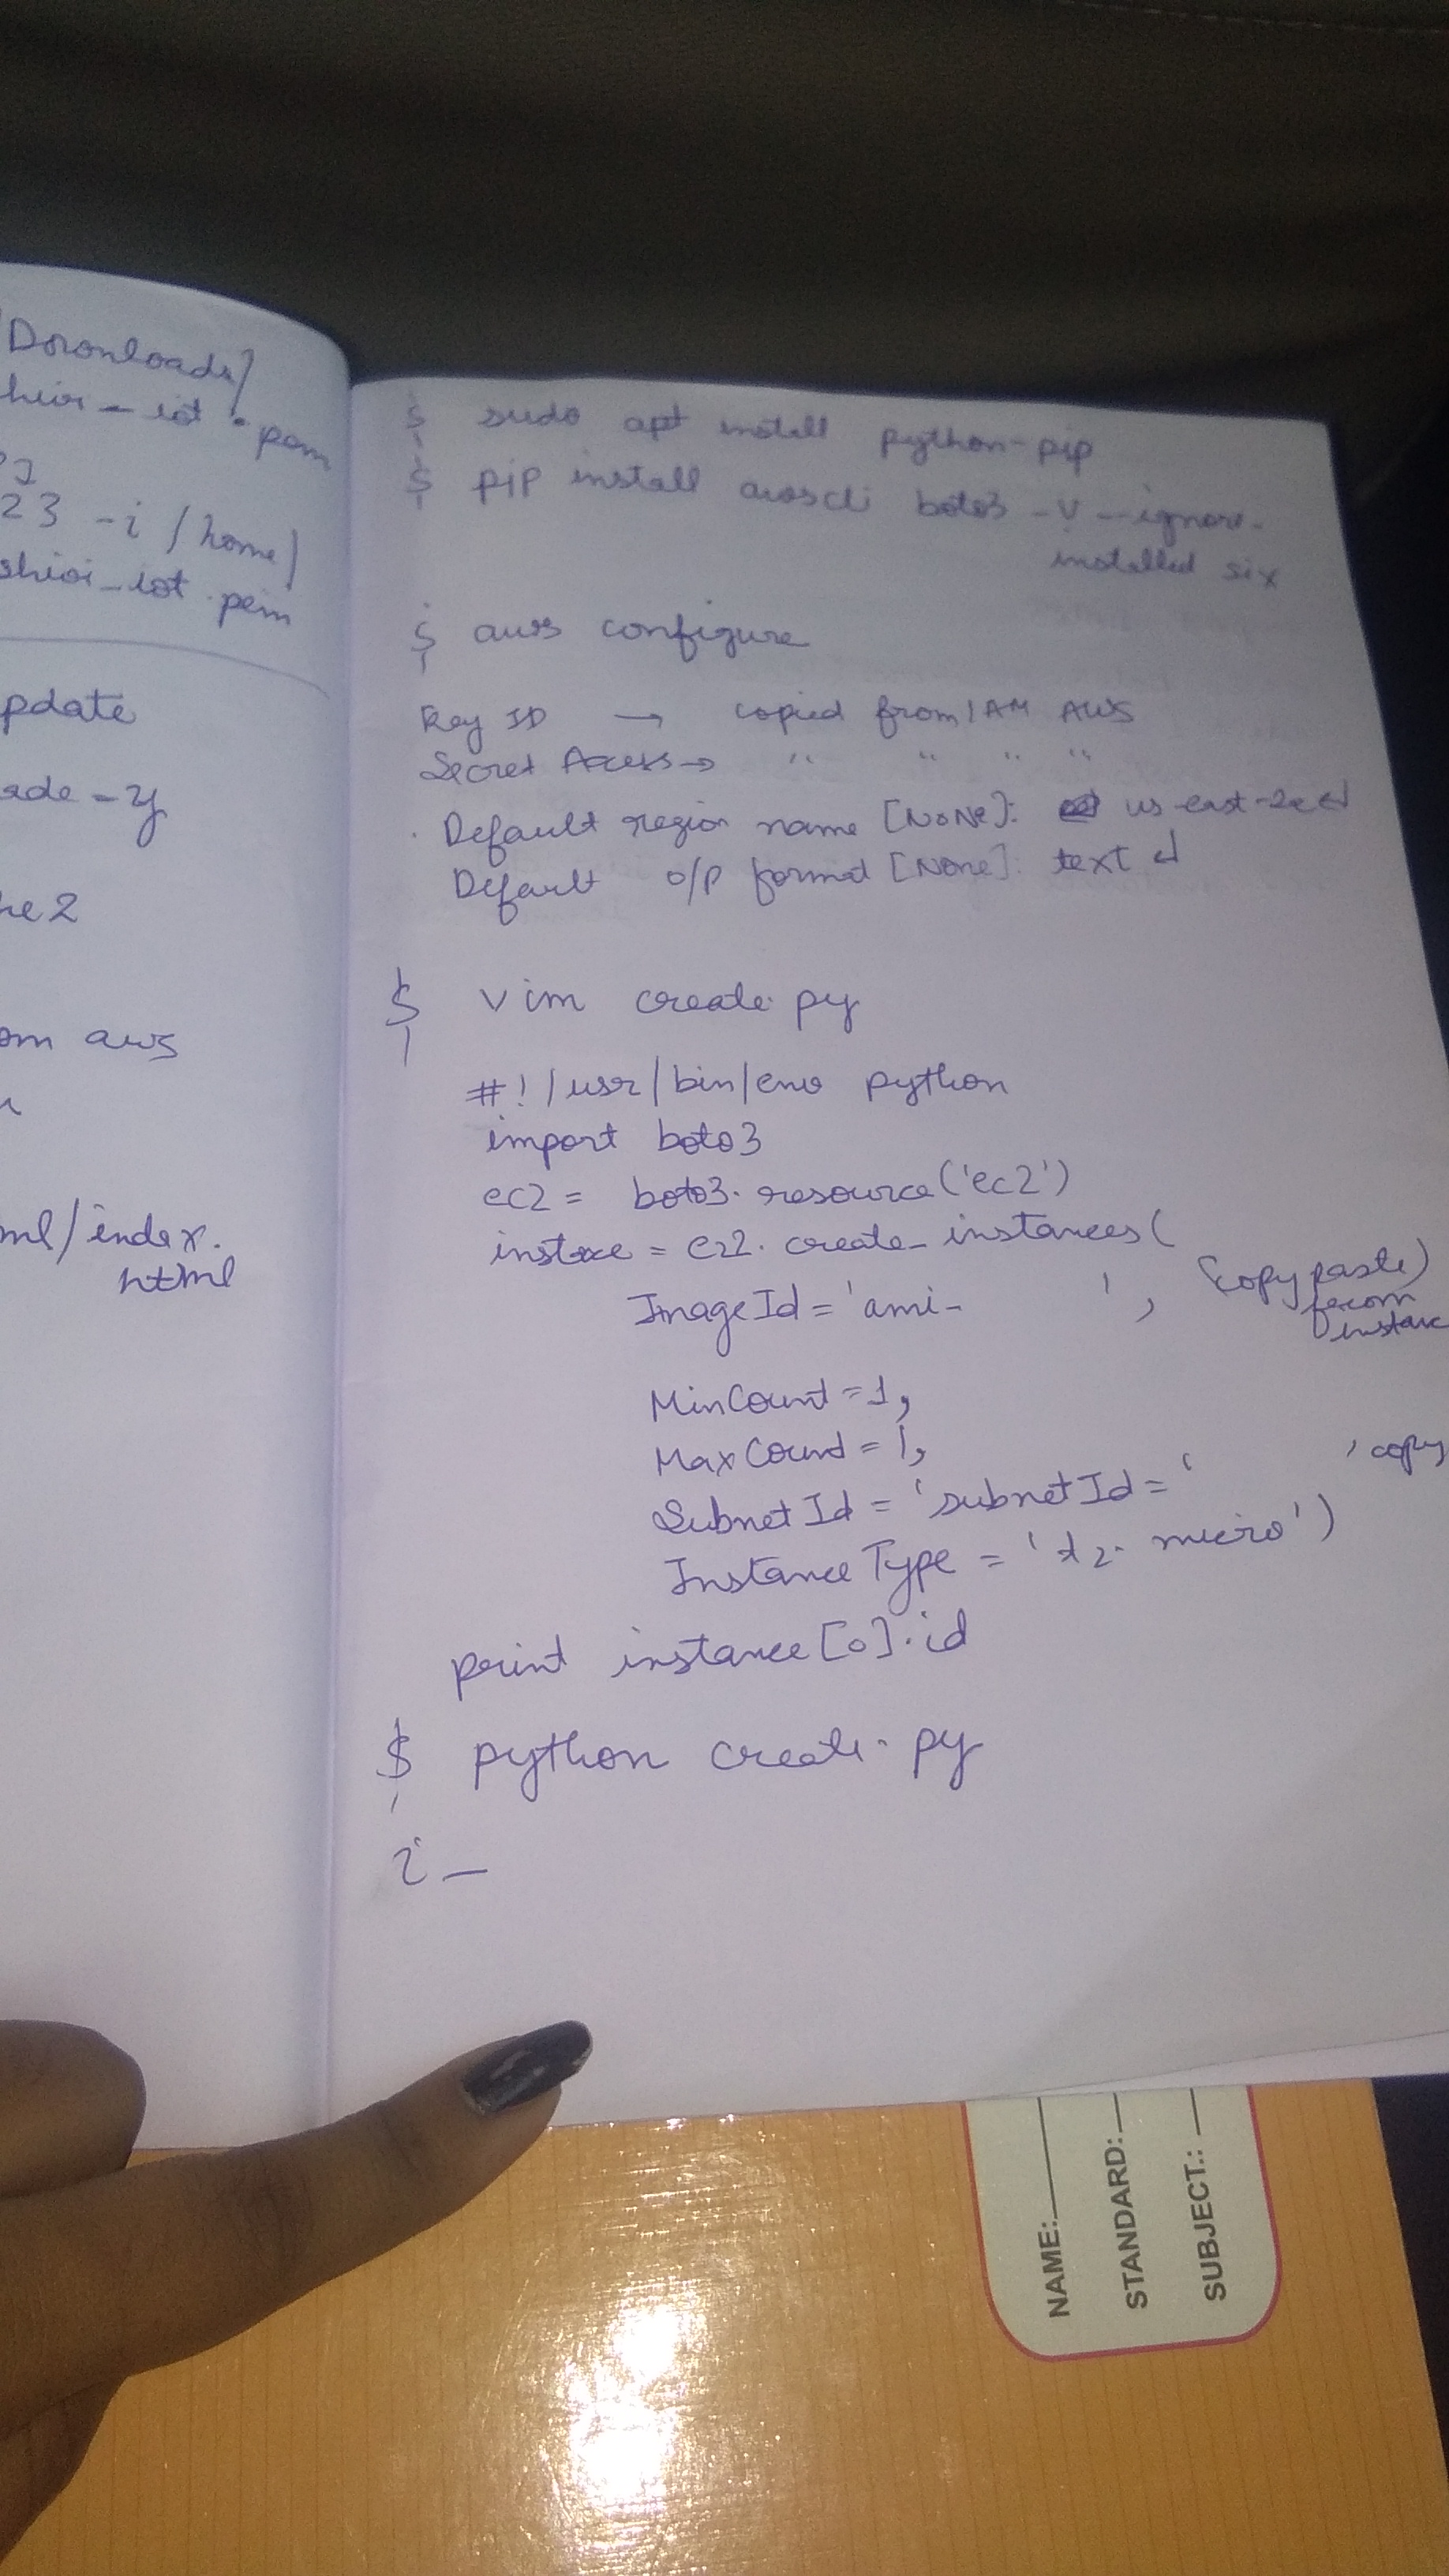 Downloads/
-iot.pem
23 -i /home/
-iot.pem
pdate
ade -y
he2
om aws
ml/index.
html
$ sudo apt install python-pip
$ pip install awscli boto3 -U --ignore-
installed six
$ aws configure
Key ID → copied from IAM AWS
Secret Access → " " " "
Default region name [NONE]: us-east-2
Default o/p format [None]: text ↵
$ vim create.py
#!/usr/bin/env python
import boto3
ec2 = boto3.resource('ec2')
= ec2.create_instances(
ImageId = 'ami- ', (copy paste)
from
instanc
MinCount = 1,
MaxCount = 1,
SubnetId = 'subnetId = ' ' copy
InstanceType = 't2.micro')
print instance[0].id
$ python create.py
i -
NAME:
STANDARD:
SUBJECT.: